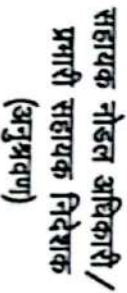 सहायक नोडल अधिकारी/
प्रभारी सहायक निदेशक
(अनुश्रवण)